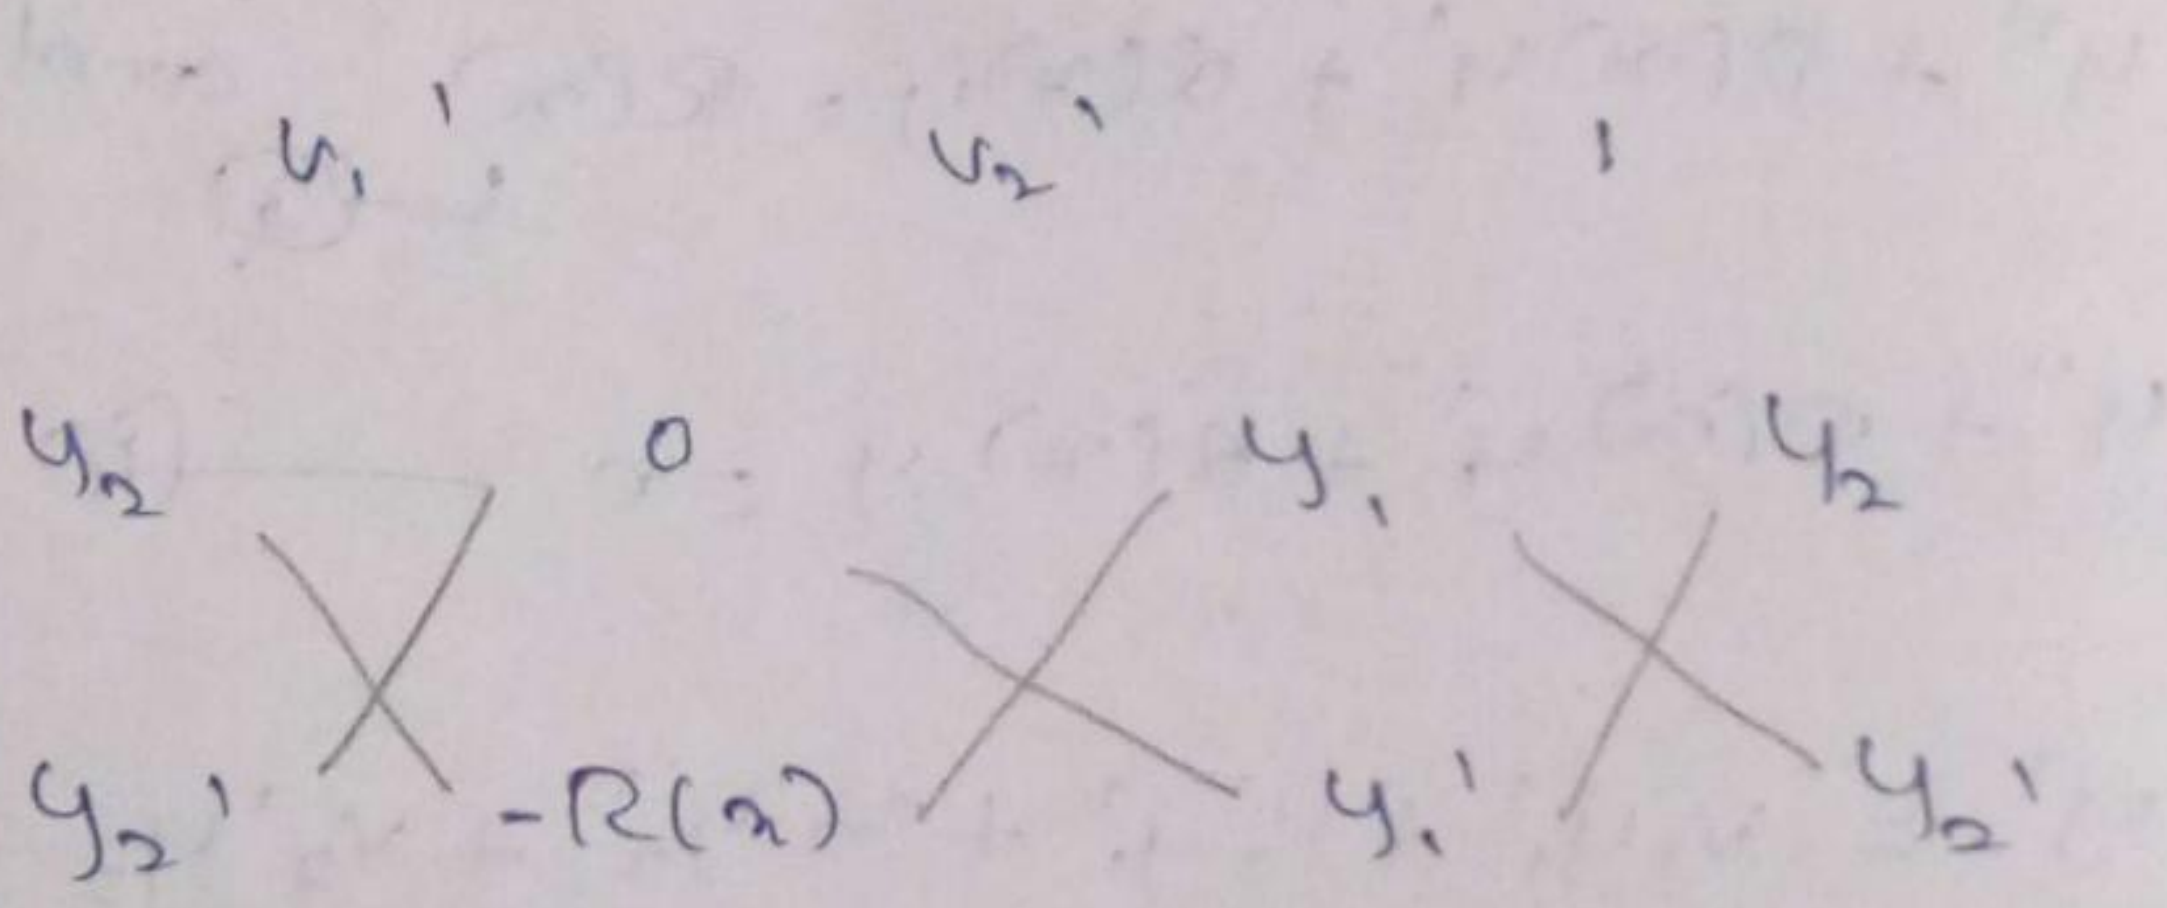 v₁' v₂' 1
y₂ 0 y₁ y₂
y₂' -R(x) y₁' y₂'